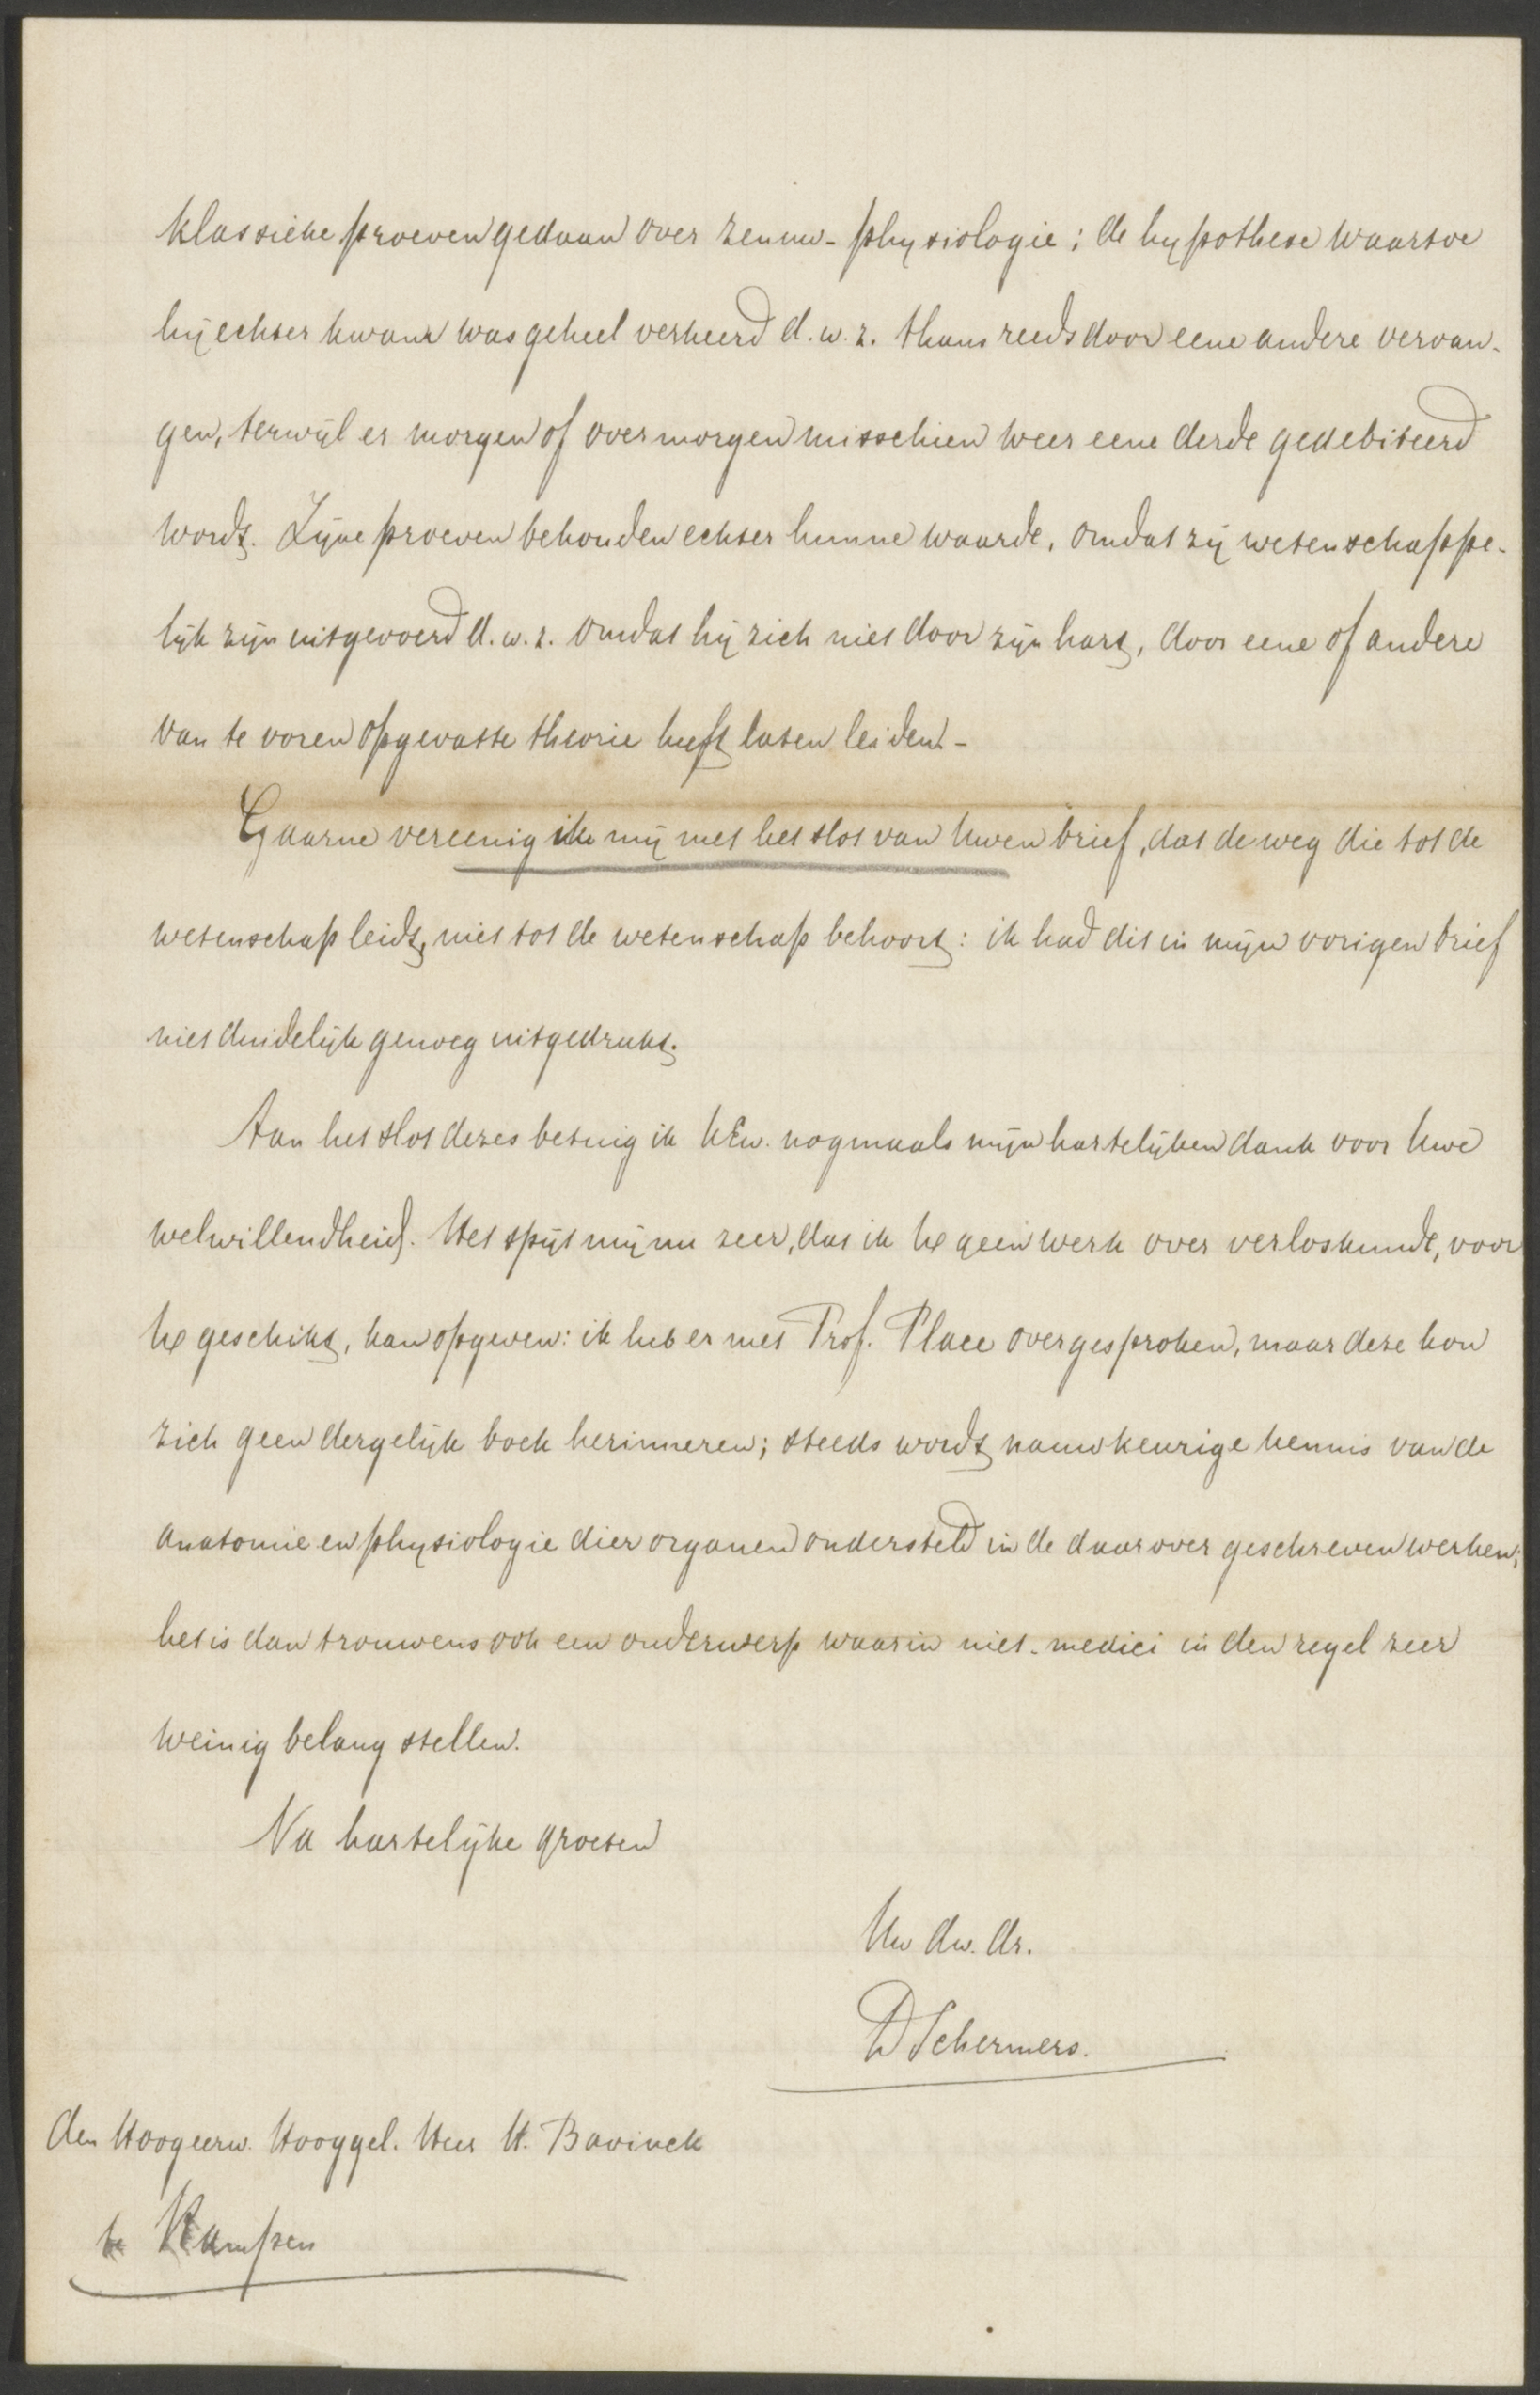 klassieke proeven gedaan over zenuw-physiologie; de hypothese waartoe
hij echter kwam was geheel verkeerd d.w.z. thans reeds door eene andere vervan-
gen, terwijl er morgen of overmorgen misschien weer eene derde gedebiteerd
wordt. Zijne proeven behouden echter hunne waarde, omdat zij wetenschappe-
lijk zijn uitgevoerd d.w.z. omdat hij zich niet door zijn hart, door eene of andere
van te voren opgevatte theorie heeft laten leiden.-
Gaarne vereenig ik mij met het slot van Uwen brief, dat de weg die tot de
wetenschap leidt, niet tot de wetenschap behoort: ik had dit in mijn vorigen brief
niet duidelijk genoeg uitgedrukt.
Aan het slot dezes betuig ik UEw. nogmaals mijn hartelijken dank voor Uwe
welwillendheid. Het spijt mij nu zeer, dat ik U geen werk over verloskunde, voor
U geschikt, kan opgeven: ik heb er met Prof. Place over gesproken, maar deze kon
zich geen dergelijk boek herinneren; steeds wordt nauwkeurige kennis van de
anatomie en physiologie dier organen ondersteld in de daarover geschreven werken;
het is dan trouwens ook een onderwerp waarin niet-medici in den regel zeer
weinig belang stellen.
Na hartelijke groeten
Uw dw. dr.
D Schermers.
Den Hoogeerw. Hooggel. Heer H. Bavinck
te Kampen